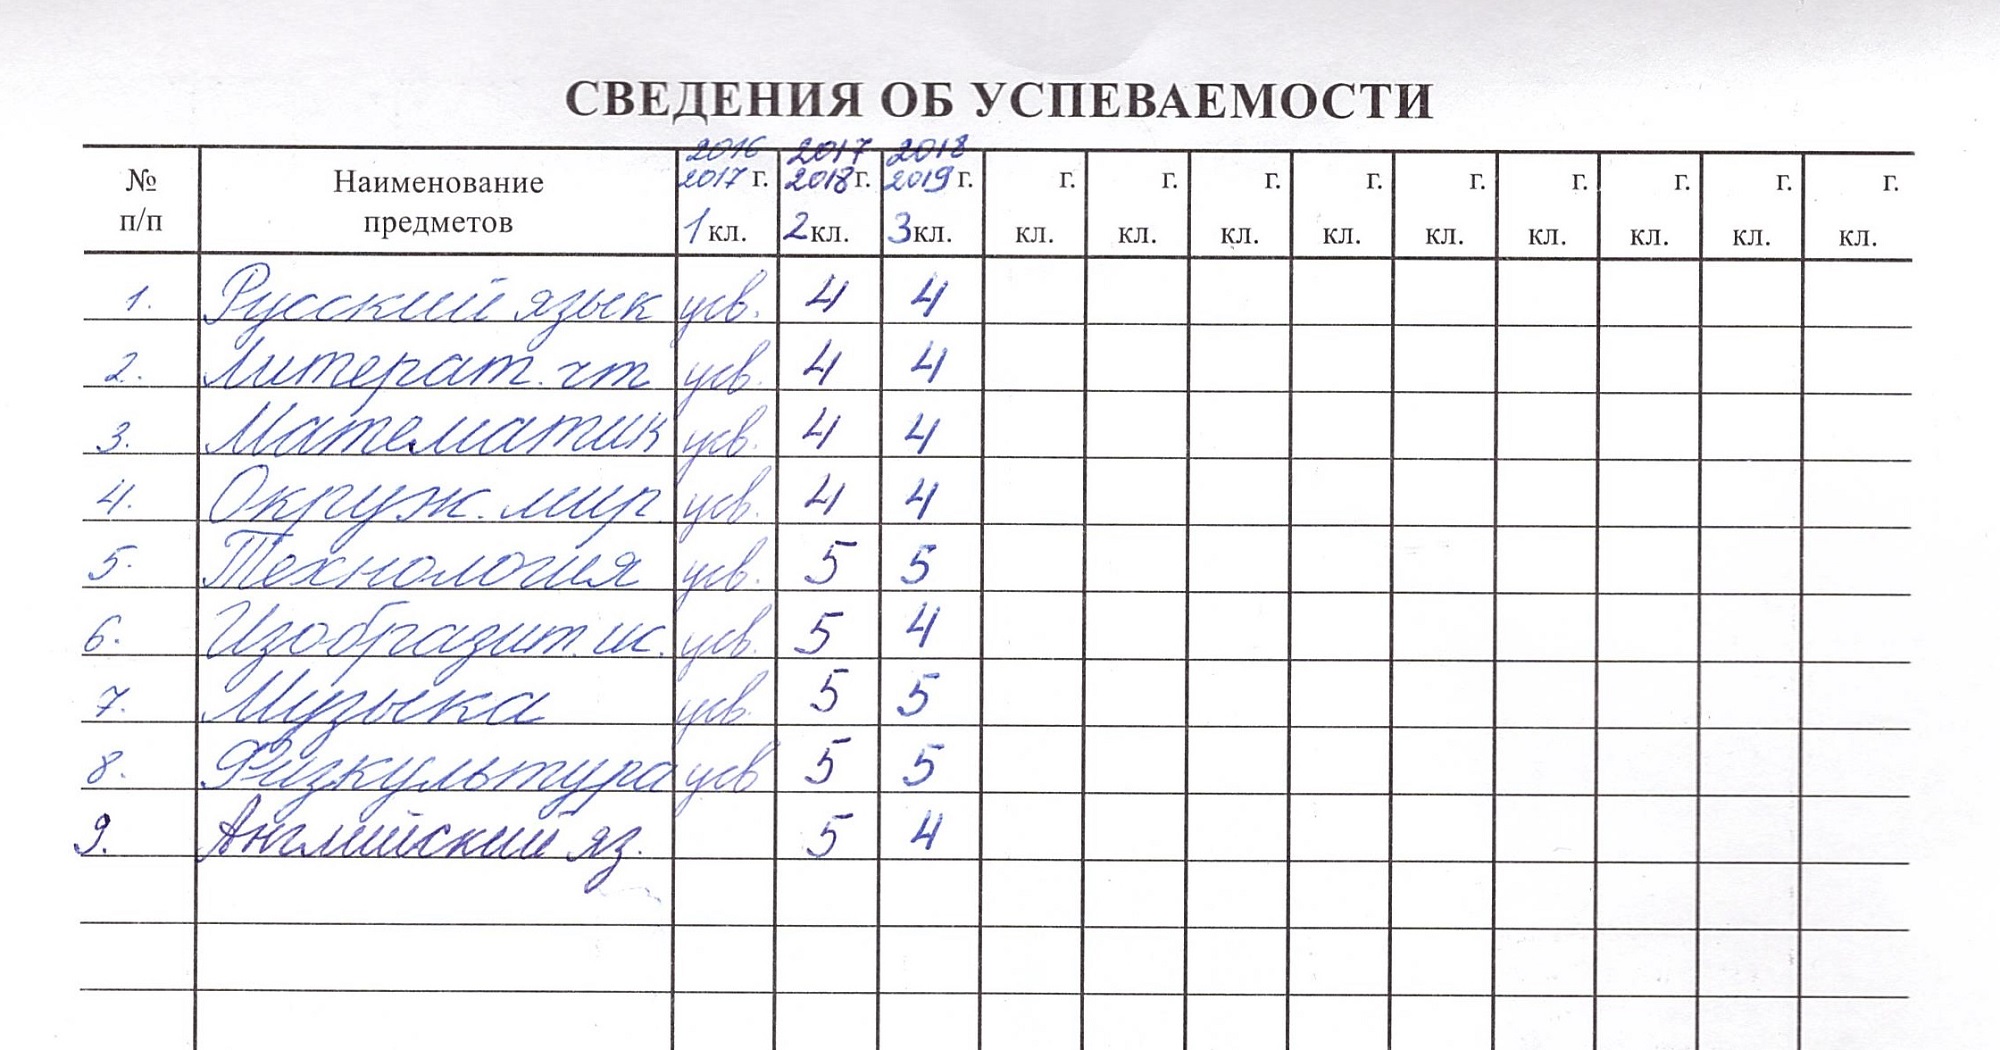 СВЕДЕНИЯ ОБ УСПЕВАЕМОСТИ
2016 2017 2018
№ Наименование 2017 г. 2018 г. 2019 г. г. г. г. г. г. г. г. г. г.
п/п предметов 1 кл. 2 кл. 3 кл. кл. кл. кл. кл. кл. кл. кл. кл. кл.
1. Русский язык усв. 4 4
2. Литерат. чт усв. 4 4
3. Математик усв. 4 4
4. Окруж. мир усв. 4 4
5. Технология усв. 5 5
6. Изобразит. ис. усв. 5 4
7. Музыка усв. 5 5
8. Физкультура усв 5 5
9. Английский яз. 5 4